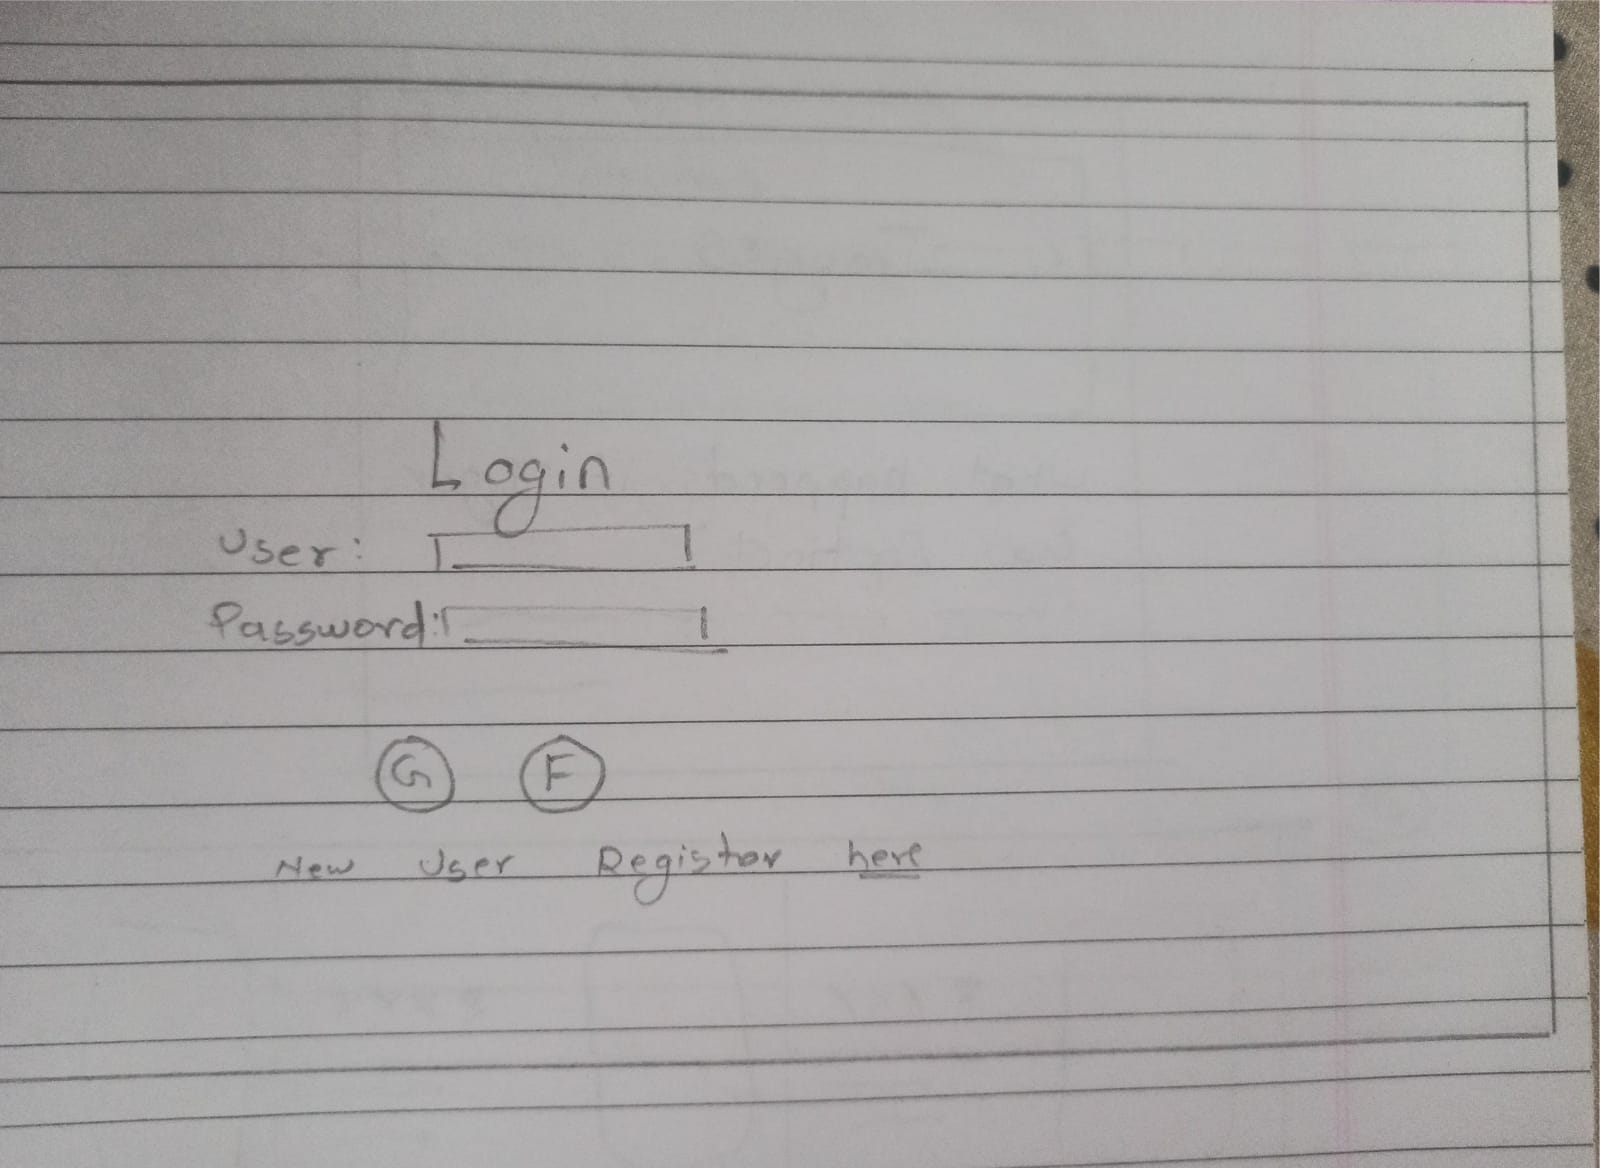 Login
User:
Password:
G F
New User Registor here